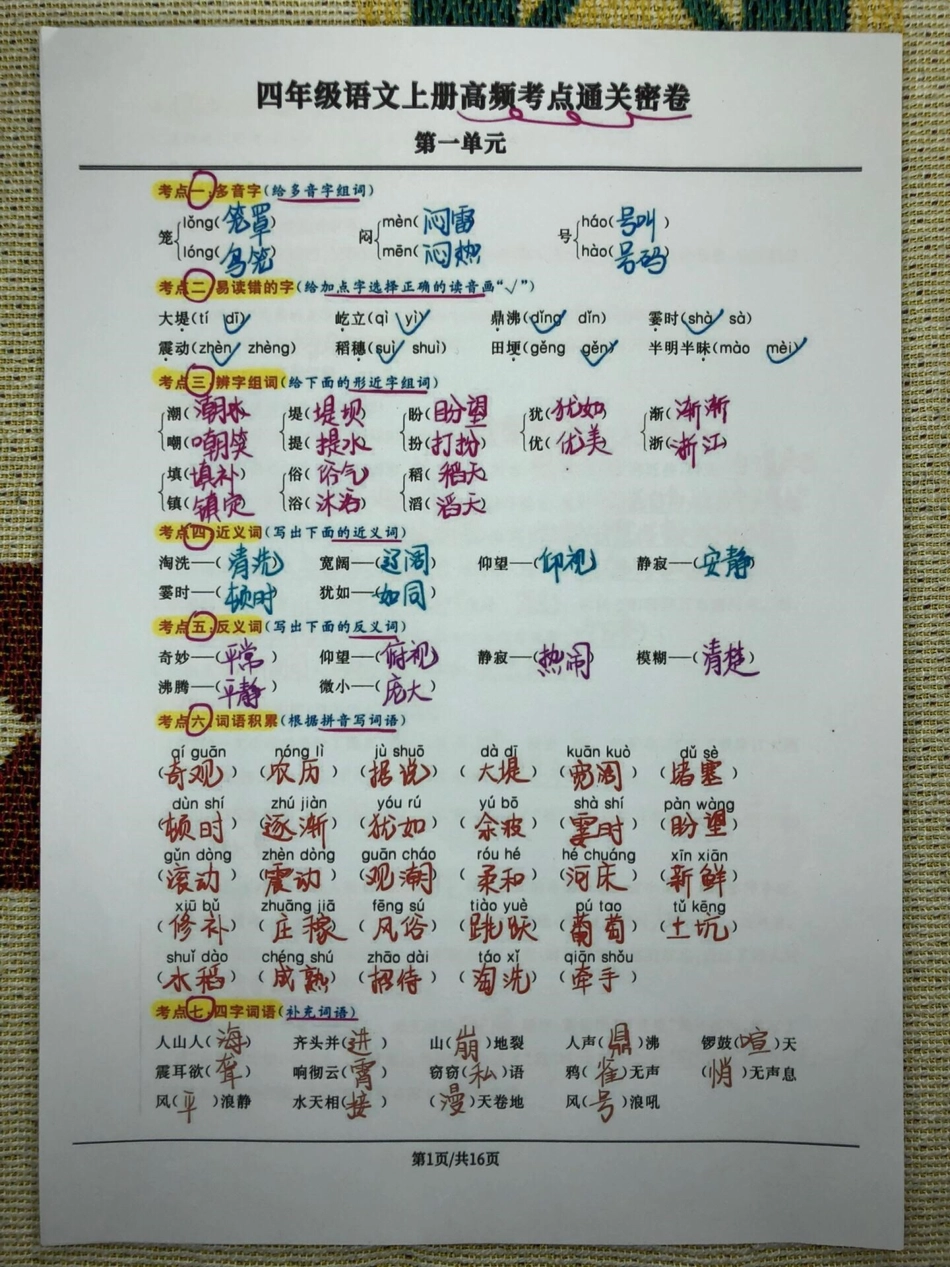 四年级语文上册高频考点通关密卷
第一单元
考点一：多音字(给多音字组词)
笼 lǒng(笼罩) 闷 mèn(闷雷) 号 háo(号叫)
lóng(鸟笼) mēn(闷热) hào(号码)
考点二：易读错的字(给加点字选择正确的读音画“√”)
大堤(tí dī√) 屹立(qì yì√) 鼎沸(dǐng√ dǐn) 霎时(shà√ sà)
震动(zhèn√ zhèng) 稻穗(suì√ shuì) 田埂(gěng gěn√) 半明半昧(mào mèi√)
考点三：辨字组词(给下面的形近字组词)
潮(潮水) 堤(堤坝) 盼(盼望) 犹(犹如) 渐(渐渐)
嘲(嘲笑) 提(提水) 扮(打扮) 优(优美) 浙(浙江)
填(填补) 俗(俗气) 稻(稻天)
镇(镇定) 浴(沐浴) 滔(滔天)
考点四：近义词(写出下面的近义词)
淘洗——(清洗) 宽阔——(辽阔) 仰望——(仰视) 静寂——(安静)
霎时——(顿时) 犹如——(如同)
考点五：反义词(写出下面的反义词)
奇妙——(平常) 仰望——(俯视) 静寂——(热闹) 模糊——(清楚)
沸腾——(平静) 微小——(庞大)
考点六：词语积累(根据拼音写词语)
qí guān nóng lì jù shuō dà dī kuān kuò dǔ sè
(奇观) (农历) (据说) (大堤) (宽阔) (堵塞)
dùn shí zhú jiàn yóu rú yú bō shà shí pàn wàng
(顿时) (逐渐) (犹如) (余波) (霎时) (盼望)
gǔn dòng zhèn dòng guān cháo róu hé hé chuáng xīn xiān
(滚动) (震动) (观潮) (柔和) (河床) (新鲜)
xiū bǔ zhuāng jiā fēng sú tiào yuè pú tao tǔ kēng
(修补) (庄稼) (风俗) (跳跃) (葡萄) (土坑)
shuǐ dào chéng shú zhāo dài táo xǐ qiān shǒu
(水稻) (成熟) (招待) (淘洗) (牵手)
考点七：四字词语(补充词语)
人山人(海) 齐头并(进) 山(崩)地裂 人声(鼎)沸 锣鼓(喧)天
震耳欲(聋) 响彻云(霄) 窃窃(私)语 鸦(雀)无声 (悄)无声息
风(平)浪静 水天相(接) (漫)天卷地 风(号)浪吼
第1页/共16页